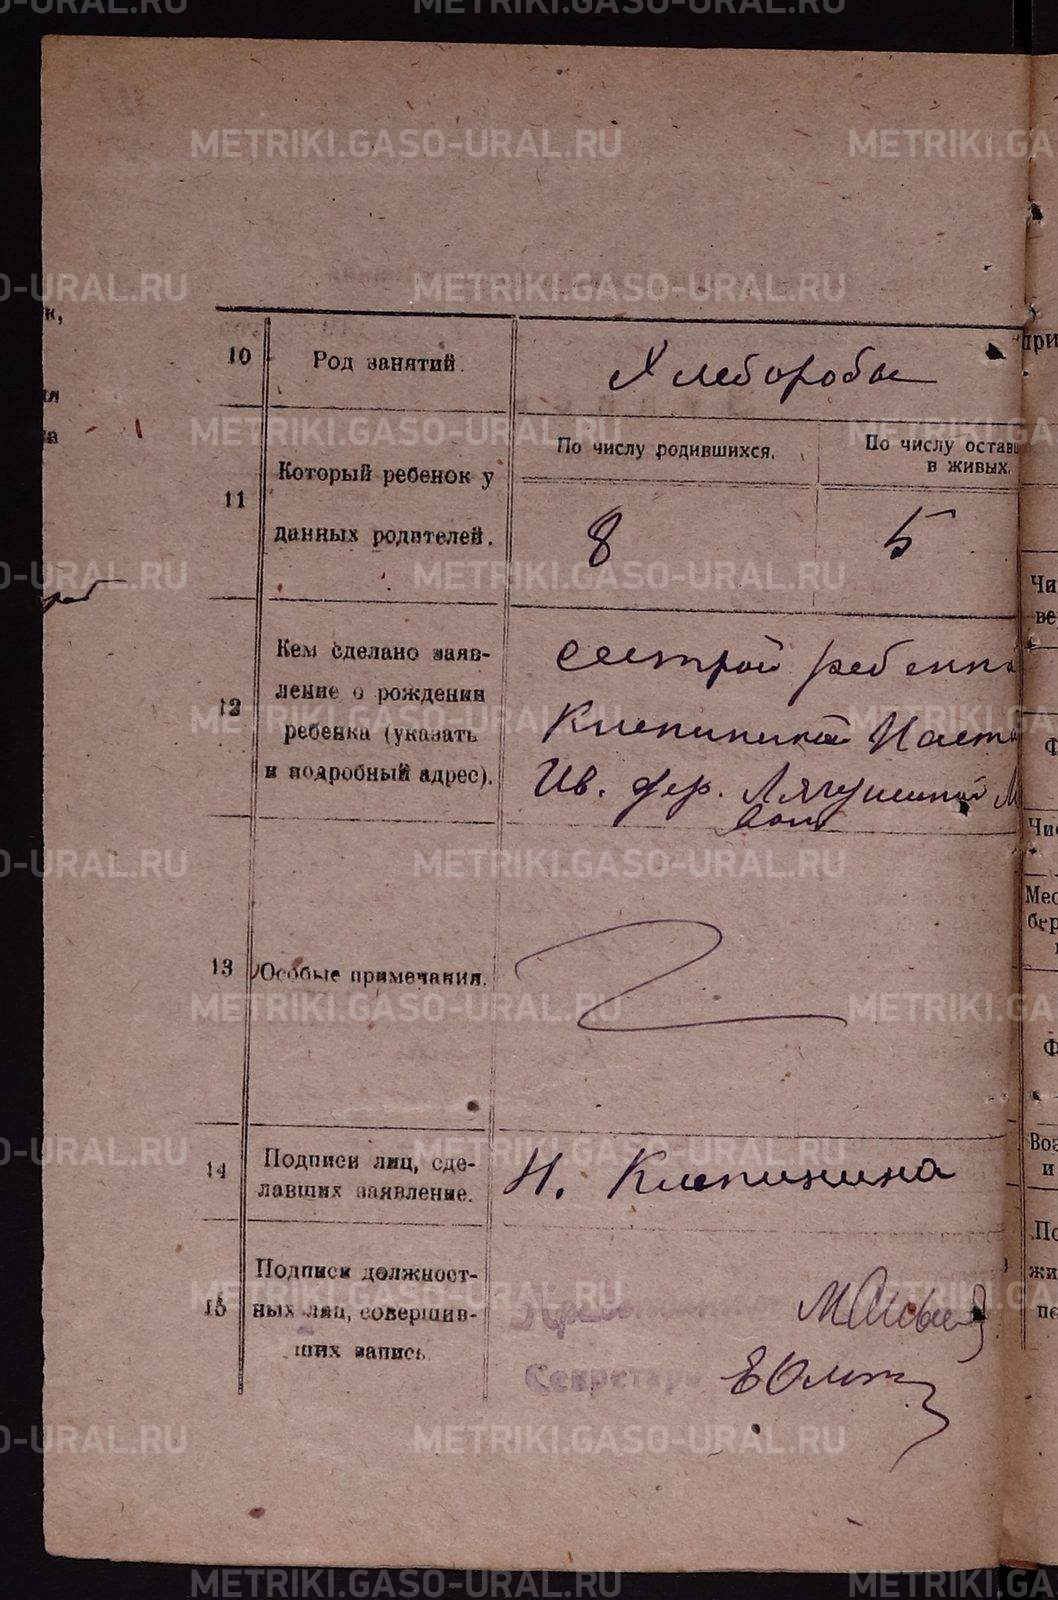 METRIKI.GASO-URAL.RU
10 Род занятий. Хлеборобы
11 Который ребенок у данных родителей.
По числу родившихся. По числу остав
в живых.
8 5
12 Кем сделано заяв-
ление о рождении
ребенка (указать
и подробный адрес).
сестрой ребенк
Клепининой Наст
Ив. дер. Лягушиной
вол
13 Особые примечания.
14 Подписи лиц, сде-
лавших заявление.
Н. Клепинина
15 Подписи должност-
ных лиц, совершив-
ших запись.
Секретарь